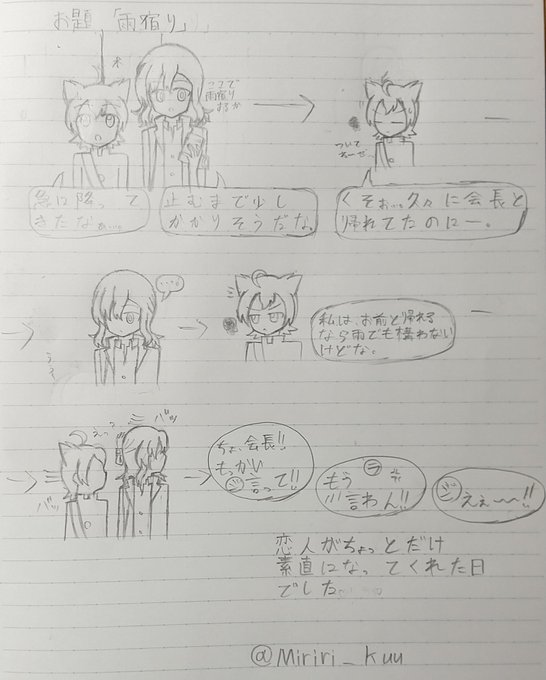 お題「雨宿り」
ここで
雨宿り
するか
急に降って
きたなぁ...。
止むまで少し
かかりそうだな。
ついて
ねーぜ...
くそぉ...久々に会長と
帰れてたのにー。
私は、お前と帰れる
なら雨でも構わない
けどな。
えっ?
バッ
バッ
ちょ、会長!!
もっかい
言って!!
もう
言わん!!
えぇ〜〜!!
恋人がちょっとだけ
素直になってくれた日
でした。
@Miriri_kuu